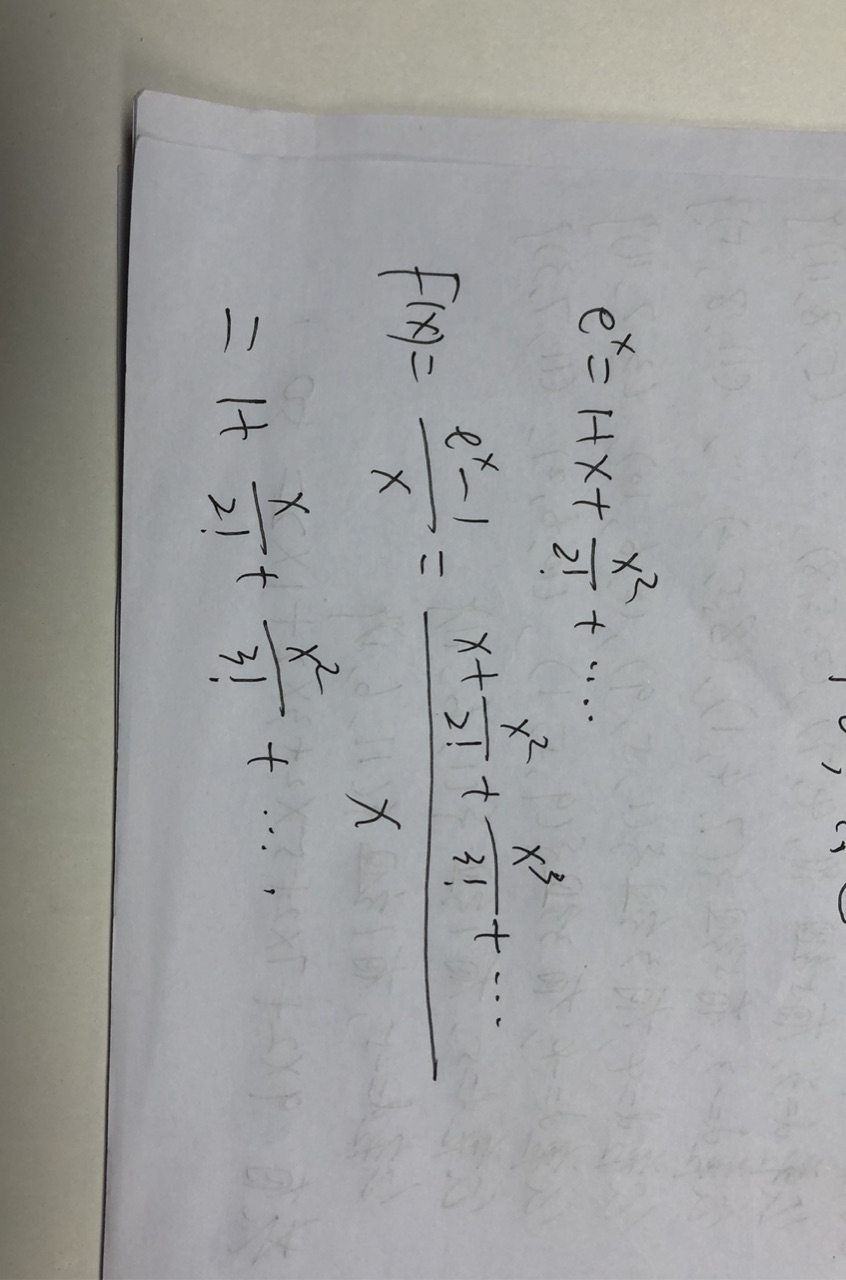 e^x = 1+x+ x^2/2! + ....
f(x) = (e^x-1)/x = (x + x^2/2! + x^3/3! + ...)/x
= 1+ x/2! + x^2/3! + ....